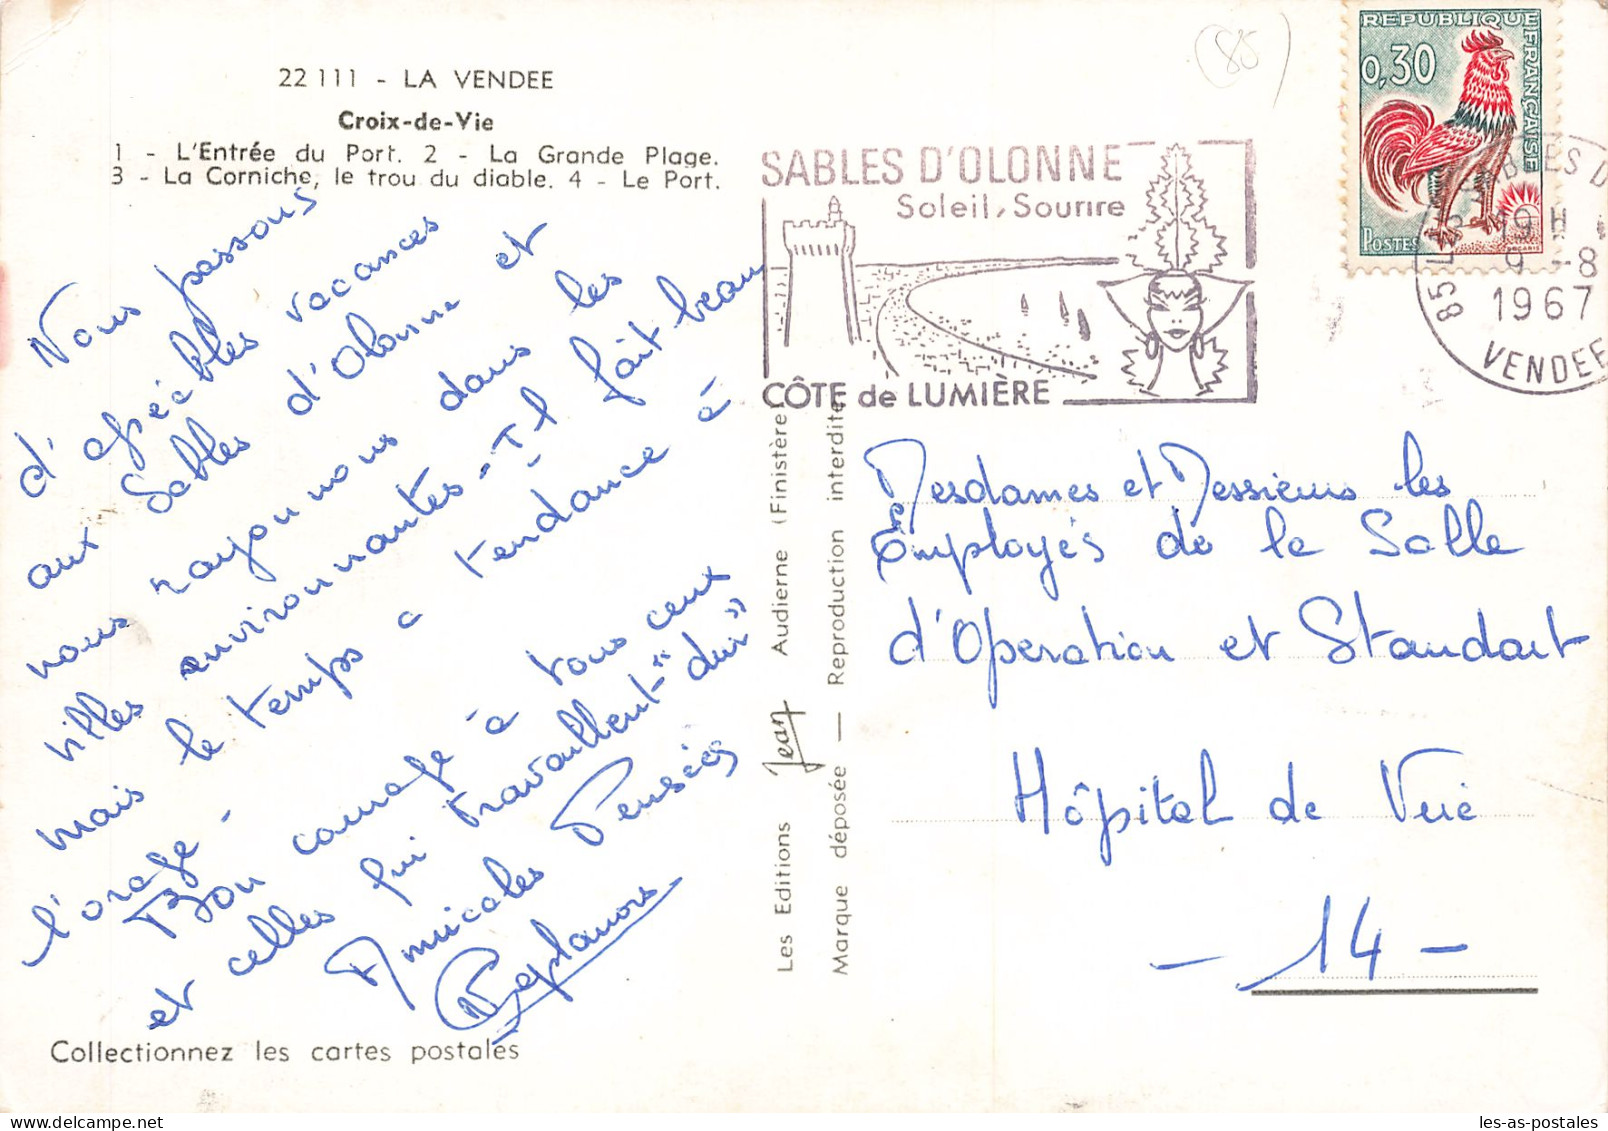 22 111 - LA VENDEE
Croix-de-Vie
1 - L'Entrée du Port. 2 - La Grande Plage.
3 - La Corniche, le trou du diable. 4 - Le Port.
(85)
REPUBLIQUE FRANÇAISE
0,30
POSTES
DECARIS
SABLES D'OLONNE
Soleil, Sourire
CÔTE de LUMIÈRE
19 H
9 -8
1967
VENDEE
Nous passons
d'agréables vacances
aux Sables d'Olonne et
nous rayonnons dans les
villes environnantes - Il fait beau
mais le temps a tendance à
l'orage -
Bon courage à tous ceux
et celles qui travaillent "dur"
Amicales Pensées
Les Editions Jean Audierne (Finistère)
Marque déposée — Reproduction interdite
Mesdames et Messieurs les
Employés de la Salle
d'Operation et Standart
Hôpital de Vire
- 14 -
Collectionnez les cartes postales
les-as-postales